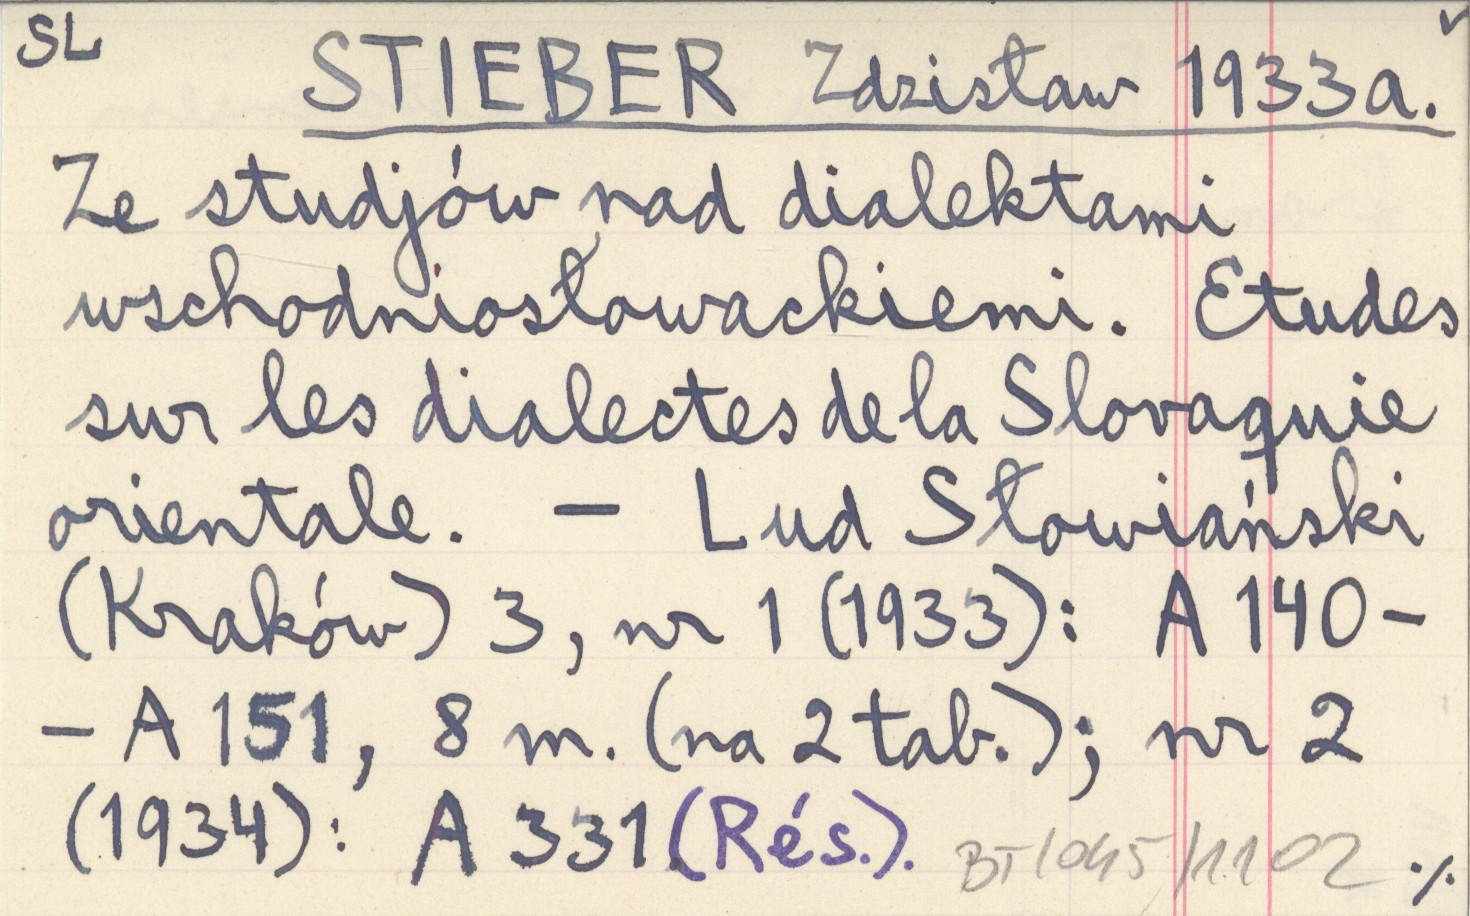 SL
STIEBER Zdzisław 1933a.
Ze studjów nad dialektami
wschodniosłowackiemi. Etudes
sur les dialectes de la Slovaquie
orientale. – Lud Słowiański
(Kraków) 3, nr 1 (1933): A 140–
– A 151, 8 m. (na 2 tab.); nr 2
(1934): A 331 (Rés.).
BT/045/1102 ./.